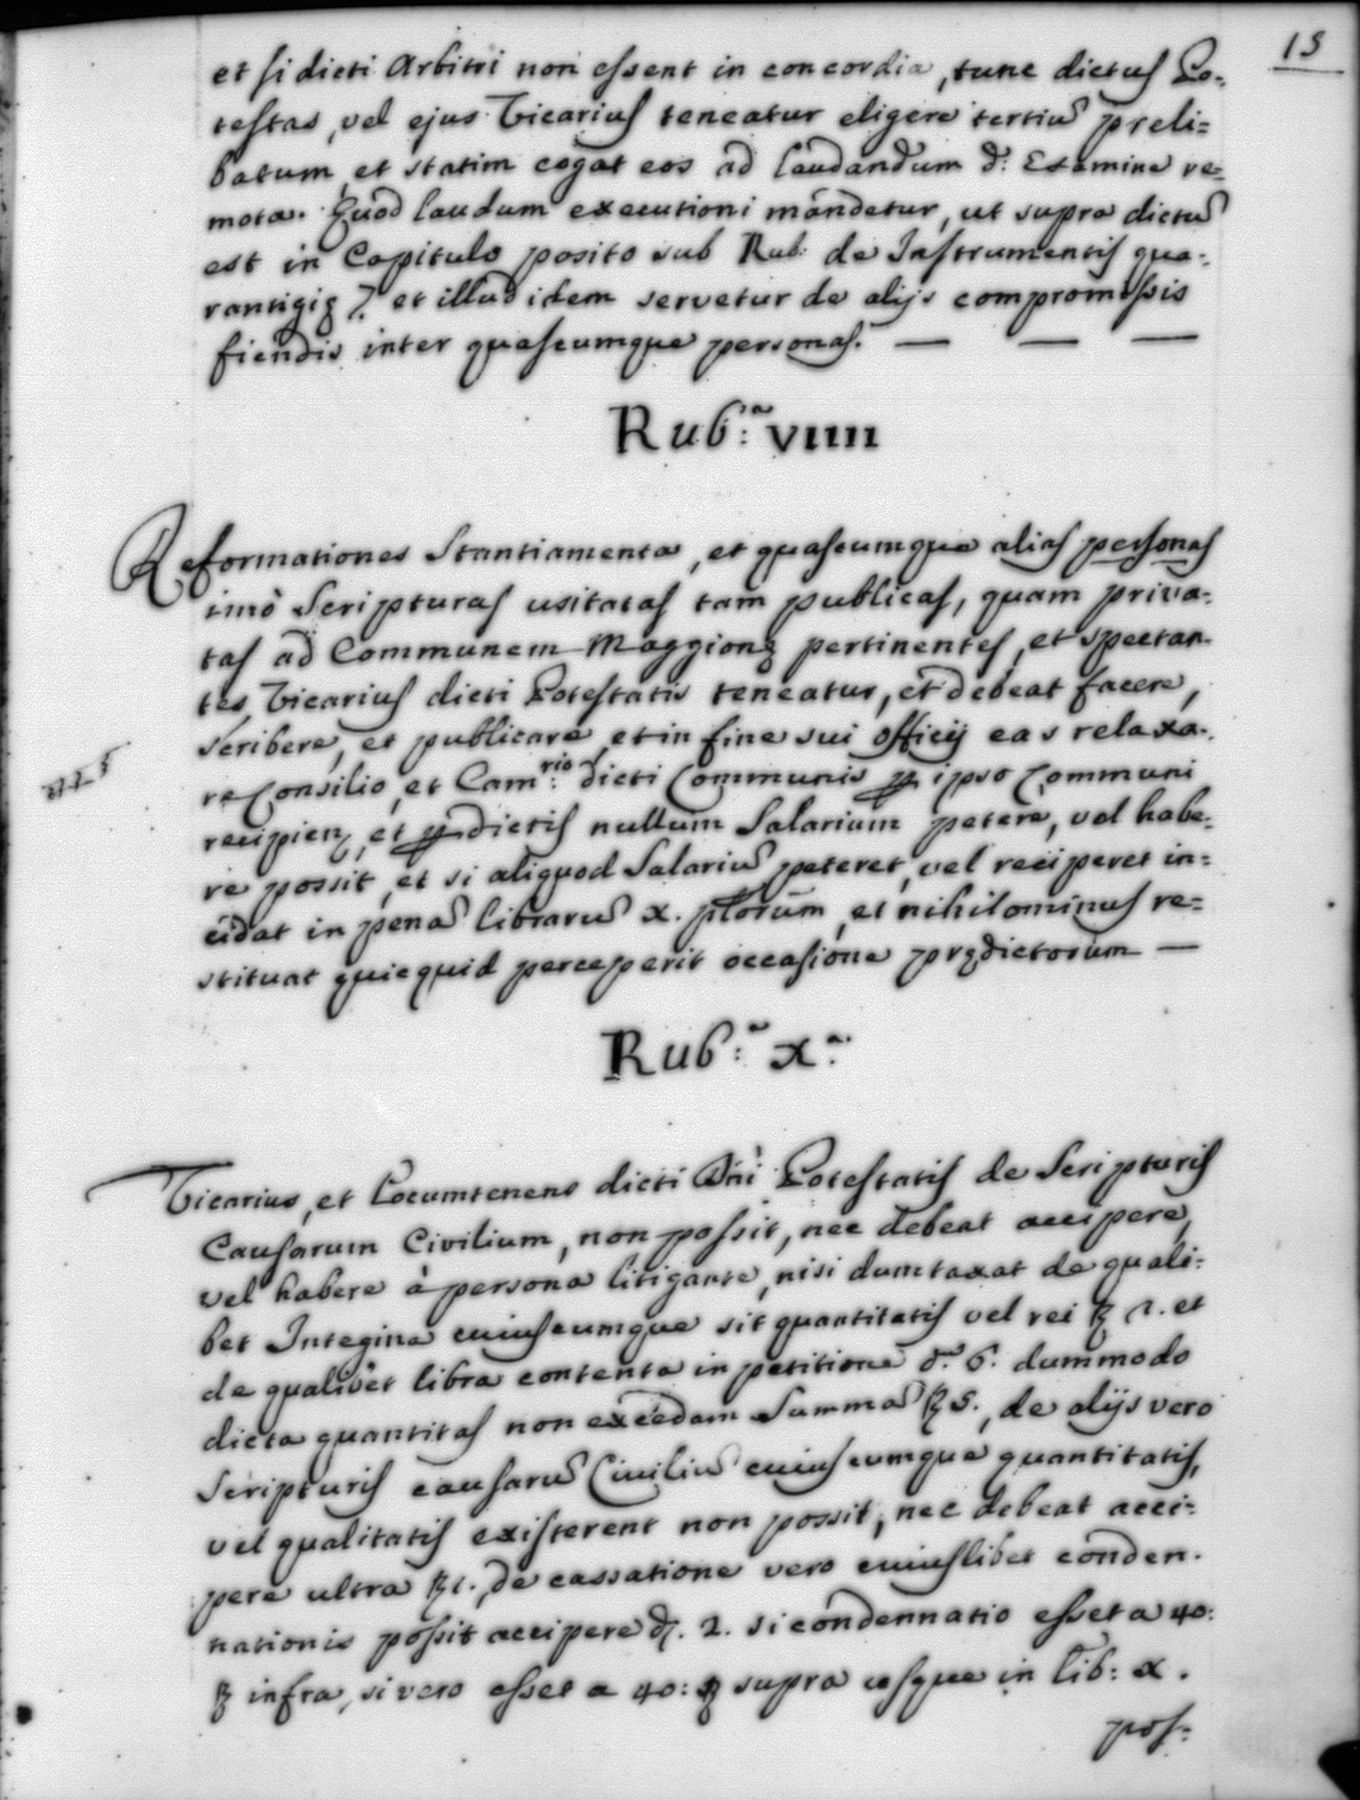 15
et si dicti Arbitri non essent in concordia, tunc dictus Po-
testas, vel ejus Vicarius teneatur eligere tertiũ preli=
batum, et statim cogat eos ad laudandum d: Examine re=
mota. Quod laudum executioni mandetur, ut supra dictũ
est in Capitulo posito sub Rub: de Instrumentis qua-
rantigię et illud idem servetur de alijs compromissis
fiendis inter quascumque personas. — — —
Rub:ª VIIII
Reformationes Stantiamenta, et quascumque alias personas
imò Scripturas usitatas tam publicas, quam priva-
tas ad Communem Maggionę pertinentes, et spectan-
tes, Vicarius dicti Potestatis teneatur, et debeat facere,
scribere, et publicare, et in fine sui officij eas relaxa-
re Consilio, et Cam:rio dicti Communis ꝓ ipso Communi
recipien, et ꝓ dictis nullum Salarium petere, vel habe-
re possit, et si aliquod Salariũ peteret, vel reciperet in=
cidat in penã librarũ X. plorum, et nihilominus re=
stituat quicquid perceperit occasione prędictorum —
Rub:ª X:ª
Vicarius, et Locumtenens dicti Dñi Potestatis de Scripturis
Causarum Civilium, non possit, nec debeat accipere,
vel habere à persona litigante, nisi dumtaxat de quali=
bet Integina cuiuscumque sit quantitatis vel rei ꝶ 1. et
de qualibet libra contenta in petitione d: 6. dummodo
dicta quantitas non excedam Summã ꝶ 5., de alijs vero
Scripturis causarũ Civiliũ cuiuscumque quantitatis,
vel qualitatis existerent non possit, nec debeat acci=
pere ultra ꝶ 1., de cassatione vero cuiuslibet conden-
nationis possit accipere d. 2. si condennatio esset a 40:
ꝶ infra, si vero esset a 40: ꝶ supra usque in lib: X.
pos=